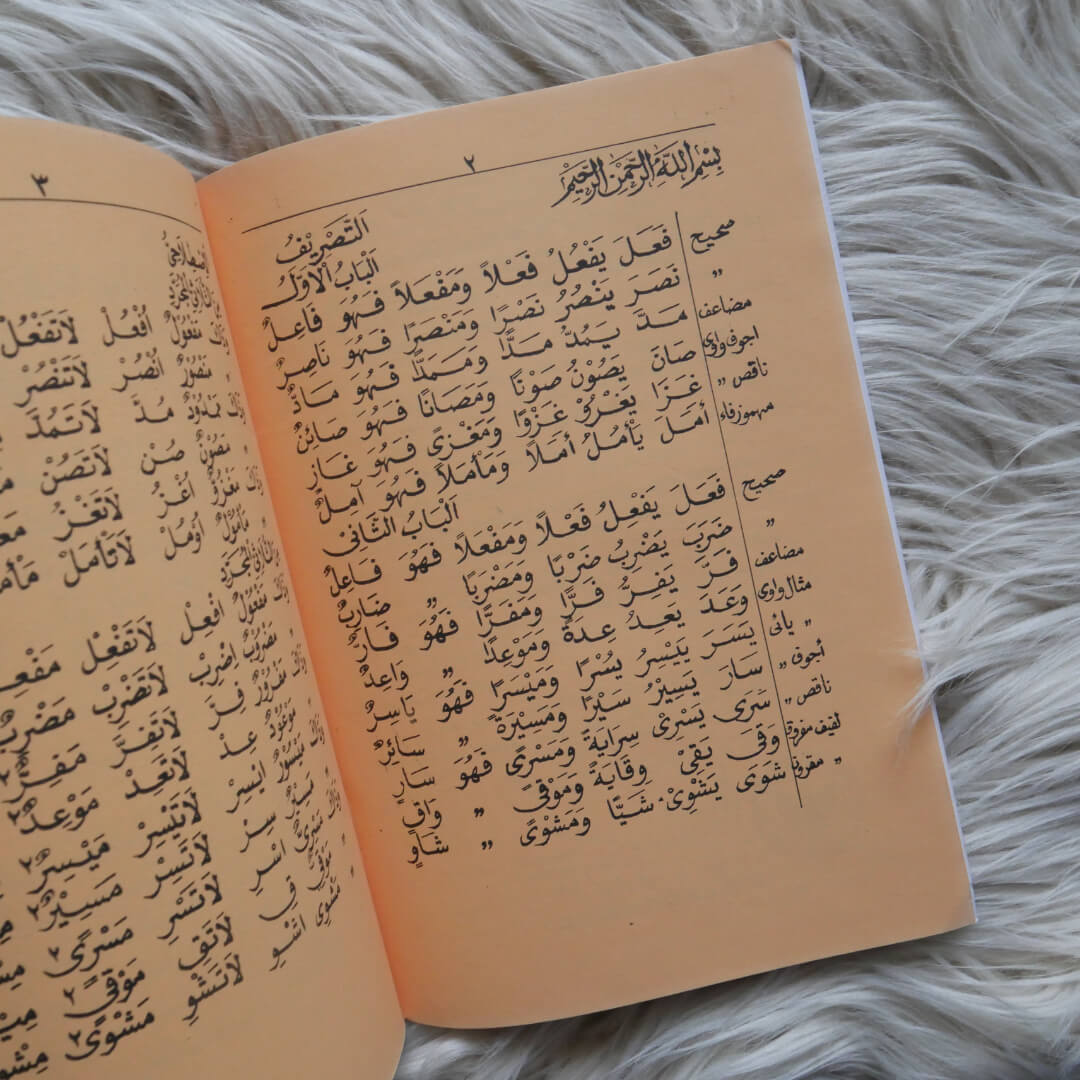 ٢
بِسْمِ اللهِ الرَّحْمٰنِ الرَّحِيْمِ
اَلتَّصْرِيْفُ
اَلْبَابُ الْاَوَّلُ
صحيح فَعَلَ يَفْعُلُ فَعْلاً وَمَفْعَلاً فَهُوَ فَاعِلٌ
〃 نَصَرَ يَنْصُرُ نَصْرًا وَمَنْصَرًا فَهُوَ نَاصِرٌ
مضاعف مَدَّ يَمُدُّ مَدًّا وَمَمَدًّا فَهُوَ مَادٌّ
اجوف واوى صَانَ يَصُوْنُ صَوْنًا وَمَصَانًا فَهُوَ صَائِنٌ
ناقص 〃 غَزَا يَغْزُوْ غَزْوًا وَمَغْزًى فَهُوَ غَازٍ
مهموز فاء أَمَلَ يَأْمُلُ أَمَلاً وَمَأْمَلاً فَهُوَ آمِلٌ
اَلْبَابُ الثَّانِى
صحيح فَعَلَ يَفْعِلُ فَعْلاً وَمَفْعَلاً فَهُوَ فَاعِلٌ
〃 ضَرَبَ يَضْرِبُ ضَرْبًا وَمَضْرَبًا 〃 ضَارِبٌ
مضاعف فَرَّ يَفِرُّ فَرًّا وَمَفَرًّا فَهُوَ فَارٌّ
مثال واوى وَعَدَ يَعِدُ عِدَةً وَمَوْعِدًا 〃 وَاعِدٌ
〃 يائى يَسَرَ يَيْسِرُ يُسْرًا وَمَيْسَرًا فَهُوَ يَاسِرٌ
أجوف 〃 سَارَ يَسِيْرُ سَيْرًا وَمَسِيْرَةً 〃 سَائِرٌ
ناقص 〃 سَرَى يَسْرِىْ سِرَايَةً وَمَسْرًى فَهُوَ سَارٍ
لفيف مفروق وَقَى يَقِىْ وِقَايَةً وَمَوْقًى 〃 وَاقٍ
〃 مقرون شَوَى يَشْوِىْ شَيًّا وَمَشْوًى 〃 شَاوٍ
٣
مَفْعُوْلٌ اُفْعُلْ لَاتَفْعُلْ
مَنْصُوْرٌ اُنْصُرْ لَاتَنْصُرْ
مَمْدُوْدٌ مُدَّ لَاتَمُدَّ
مَصُوْنٌ صُنْ لَاتَصُنْ
اُغْزُ لَاتَغْزُ
مَأْمُوْلٌ اُوْمُلْ لَاتَأْمُلْ
مَفْعُوْلٌ اِفْعِلْ لَاتَفْعِلْ
مَضْرُوْبٌ اِضْرِبْ لَاتَضْرِبْ
مَفْرُوْرٌ فِرَّ لَاتَفِرَّ مَفَرٌّ ٢
مَوْعُوْدٌ عِدْ لَاتَعِدْ مَوْعِدٌ ٢
مَيْسُوْرٌ اِيْسِرْ لَاتَيْسِرْ مَيْسِرٌ ٢
سِرْ لَاتَسِرْ مَسِيْرٌ ٢
اِسْرِ لَاتَسْرِ مَسْرًى ٢
قِ لَاتَقِ مَوْقًى ٢
مَشْوِىٌّ اِشْوِ لَاتَشْوِ مَشْوًى ٢